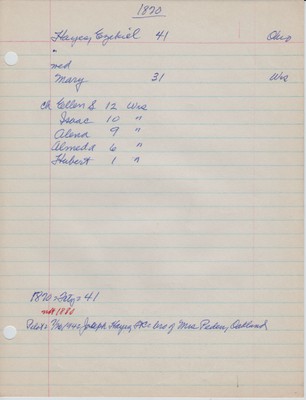 1870
Hayes, Ezekiel 41 Ohio
"
med
Mary 31 Wis
Ch Ellen S 12 Wis
Isaac 10 "
Alena 9 "
Almeda 6 "
Hubert 1 "
1870 = 41
not 1880
Joseph Hayes, bro of Mrs Peden, Oakland